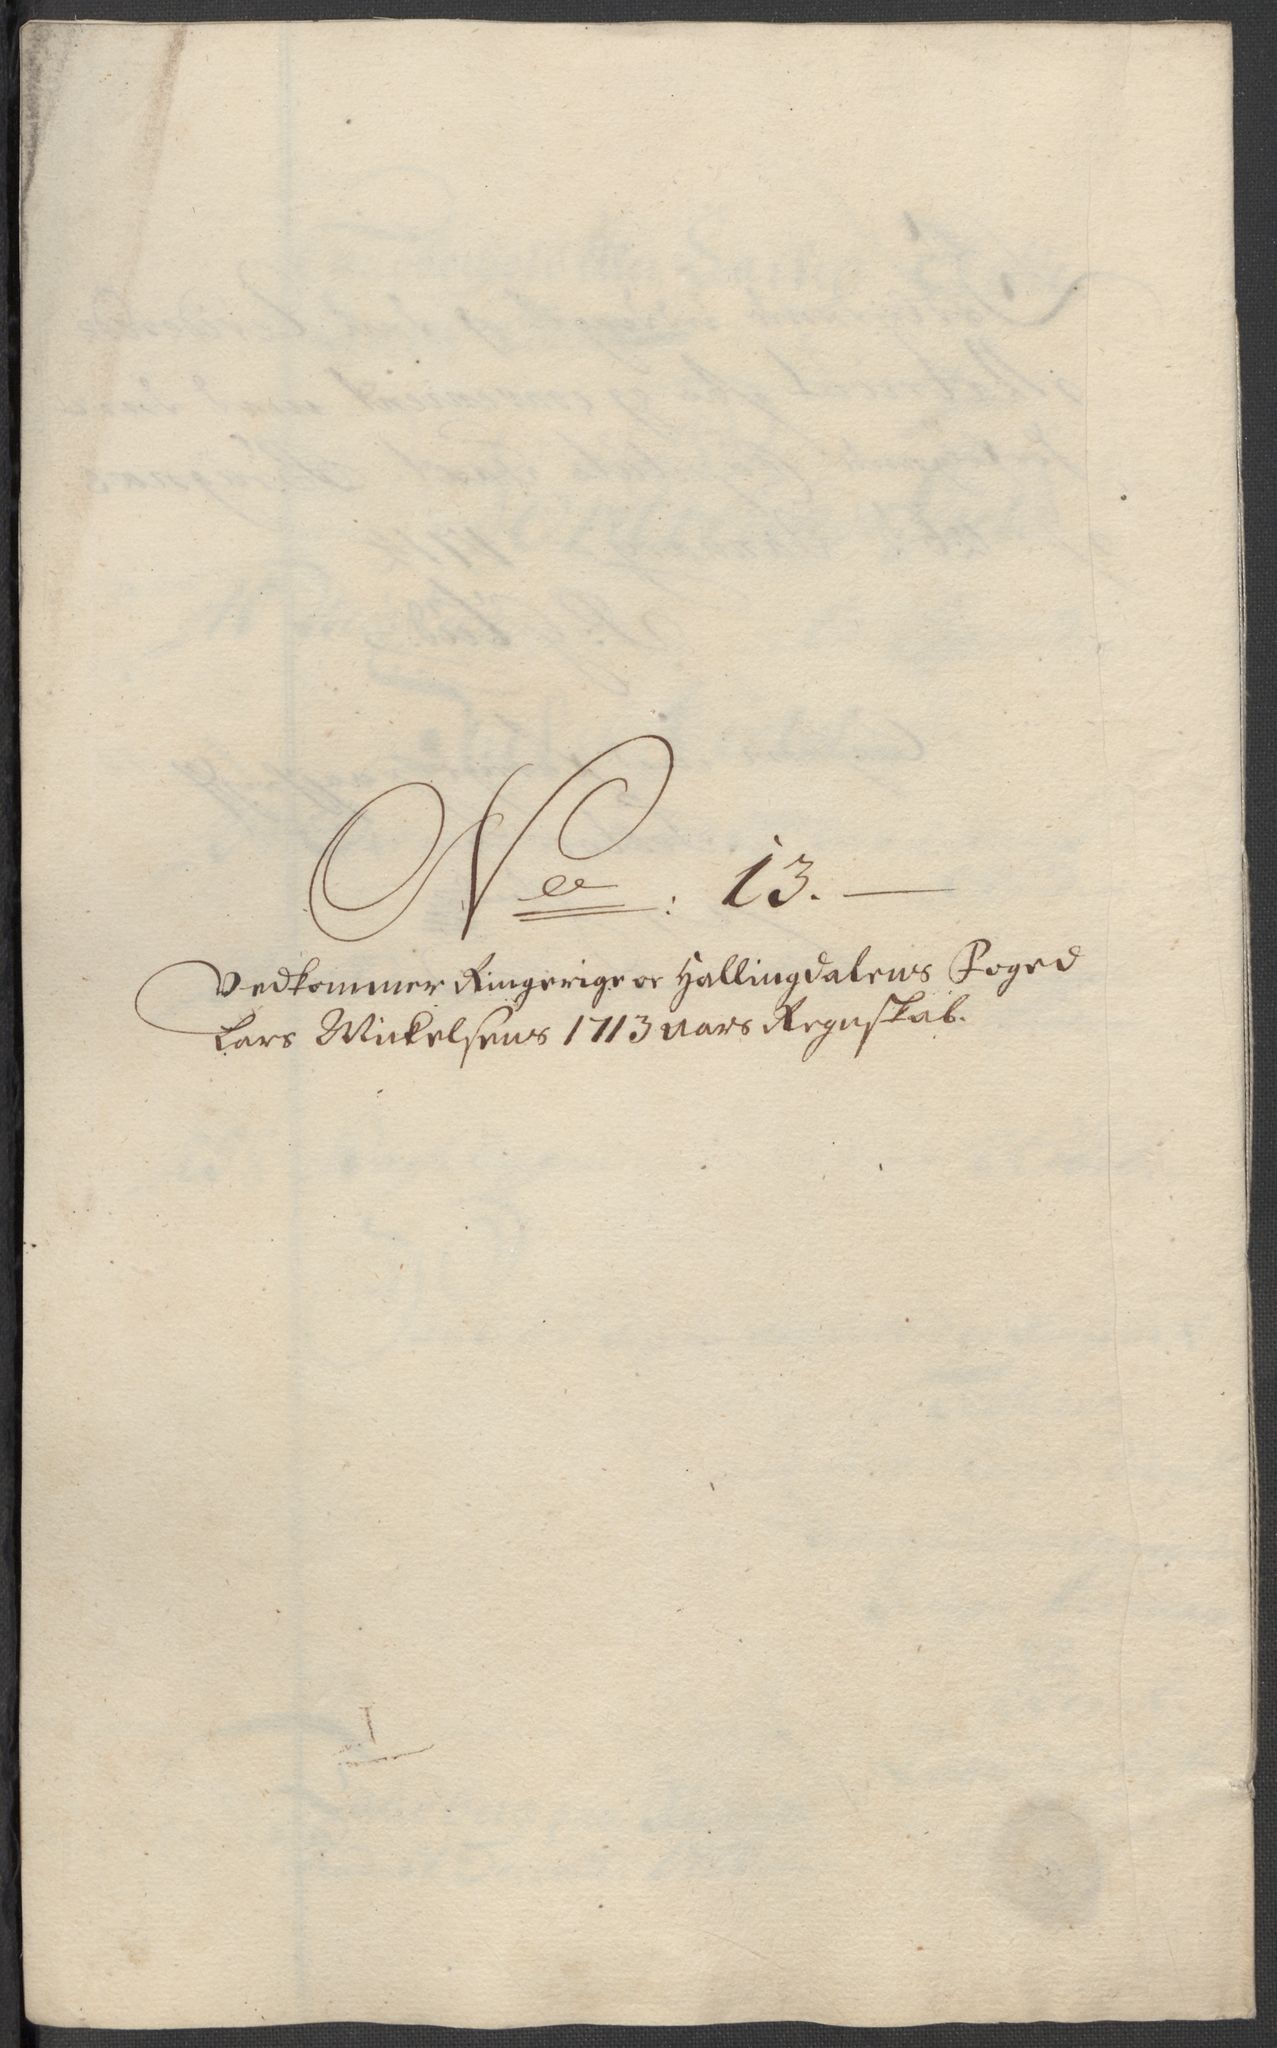 Nee: 13. —
Vedkommer Ringerige oc Hallingdalens Foged
Lars Mickelsens 1713 aars Regnskab.